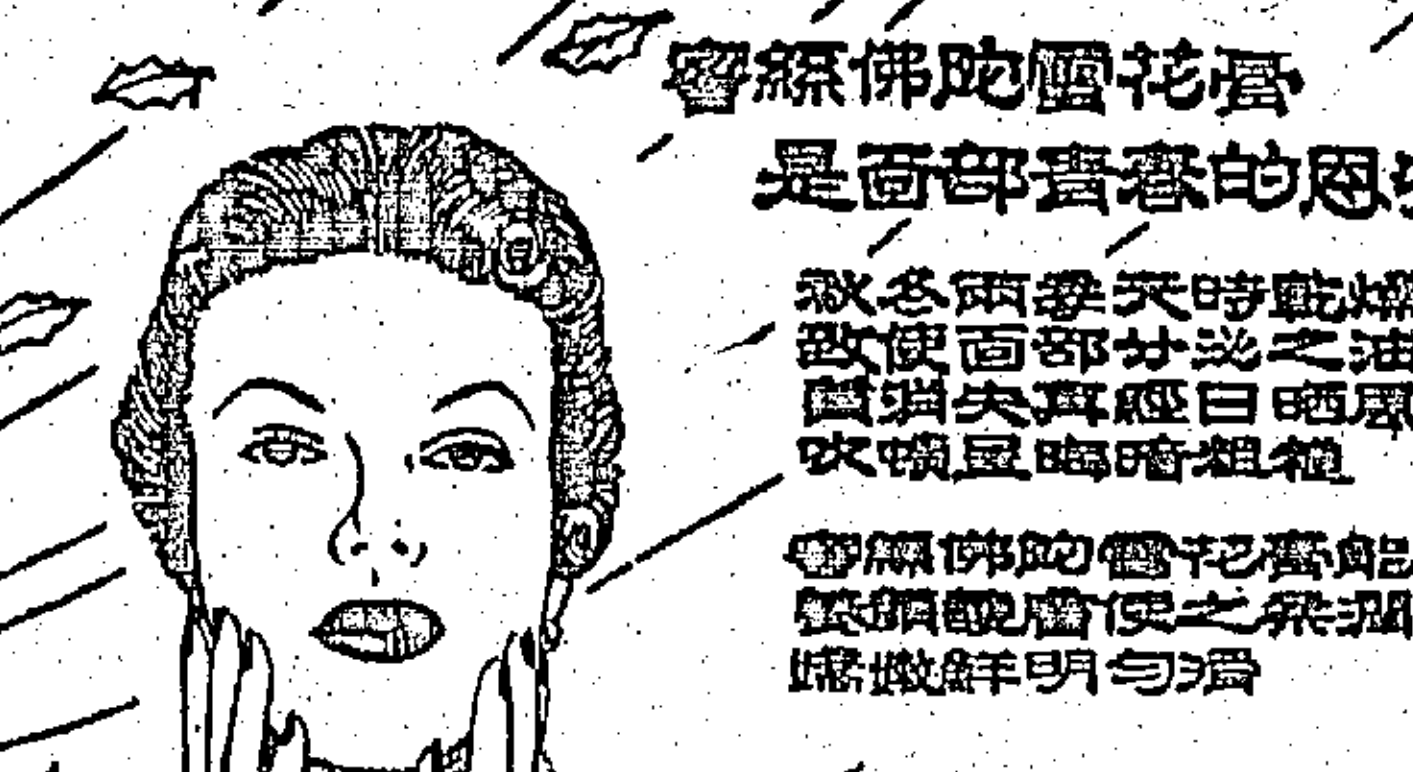 蜜絲佛陀雪花膏
是面部青春的恩
秋冬兩季天時乾燥
致使面部分泌之油
質消失再經日晒風
吹頓呈晦暗粗糙
蜜絲佛陀雪花膏能
養顏 膚使之柔潤
嬌嫩鮮明勻滑